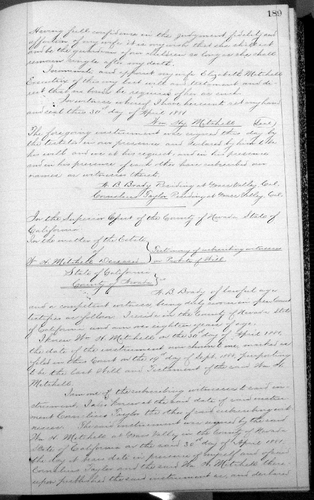 189
Having full confidence in the judgement fidelity and
affection of my wife it is my wish that she shall act
and be the guardian of our children as long as she shall
remain single after my death.
I nominate and appoint my wife Elizabeth Mitchell
Executrix of this my last will and testament and de-
sire that no bonds be required of her as such.
In witness whereof I have hereunto set my hand
and seal this 30th day of April 1881.
Wm. H. Mitchell (Seal)
The foregoing instrument was signed this day by
the testator in our presence and declared by him to be
his will and we at his request and in his presence
and in the presence of each other have subscribed our
names as witnesses thereto.
A. B. Brady Residing at Grass Valley, Cal.
Cornelius Taylor Residing at Grass Valley, Cal.
In the Superior Court of the County of Nevada State of
California
In the matter of the Estate
of
W. H. Mitchell Deceased
Testimony of subscribing witness
on Probate of Will
State of California
County of Nevada
A. B. Brady of lawful age
and a competent witness being duly sworn
testifies as follows. I reside in the County of Nevada State
of California and am over eighteen years of age.
I knew Wm. H. Mitchell on the 30th day of April 1881,
the date of the instrument now shown me, marked as
filed in this Court on the day of Sept. 1881, purporting
to be the last Will and Testament of the said Wm. H.
Mitchell.
I am one of the subscribing witnesses to said in-
strument. I also knew at the date of said instru-
ment Cornelius Taylor the other subscribing wit-
ness. The said instrument was signed by the said
Wm. H. Mitchell at Grass Valley in the County of Nevada
State of California on the said 30th day of April 1881,
the day it bears date in presence of myself and of said
Cornelius Taylor and the said Wm. H. Mitchell there-
upon published the said instrument as and declared